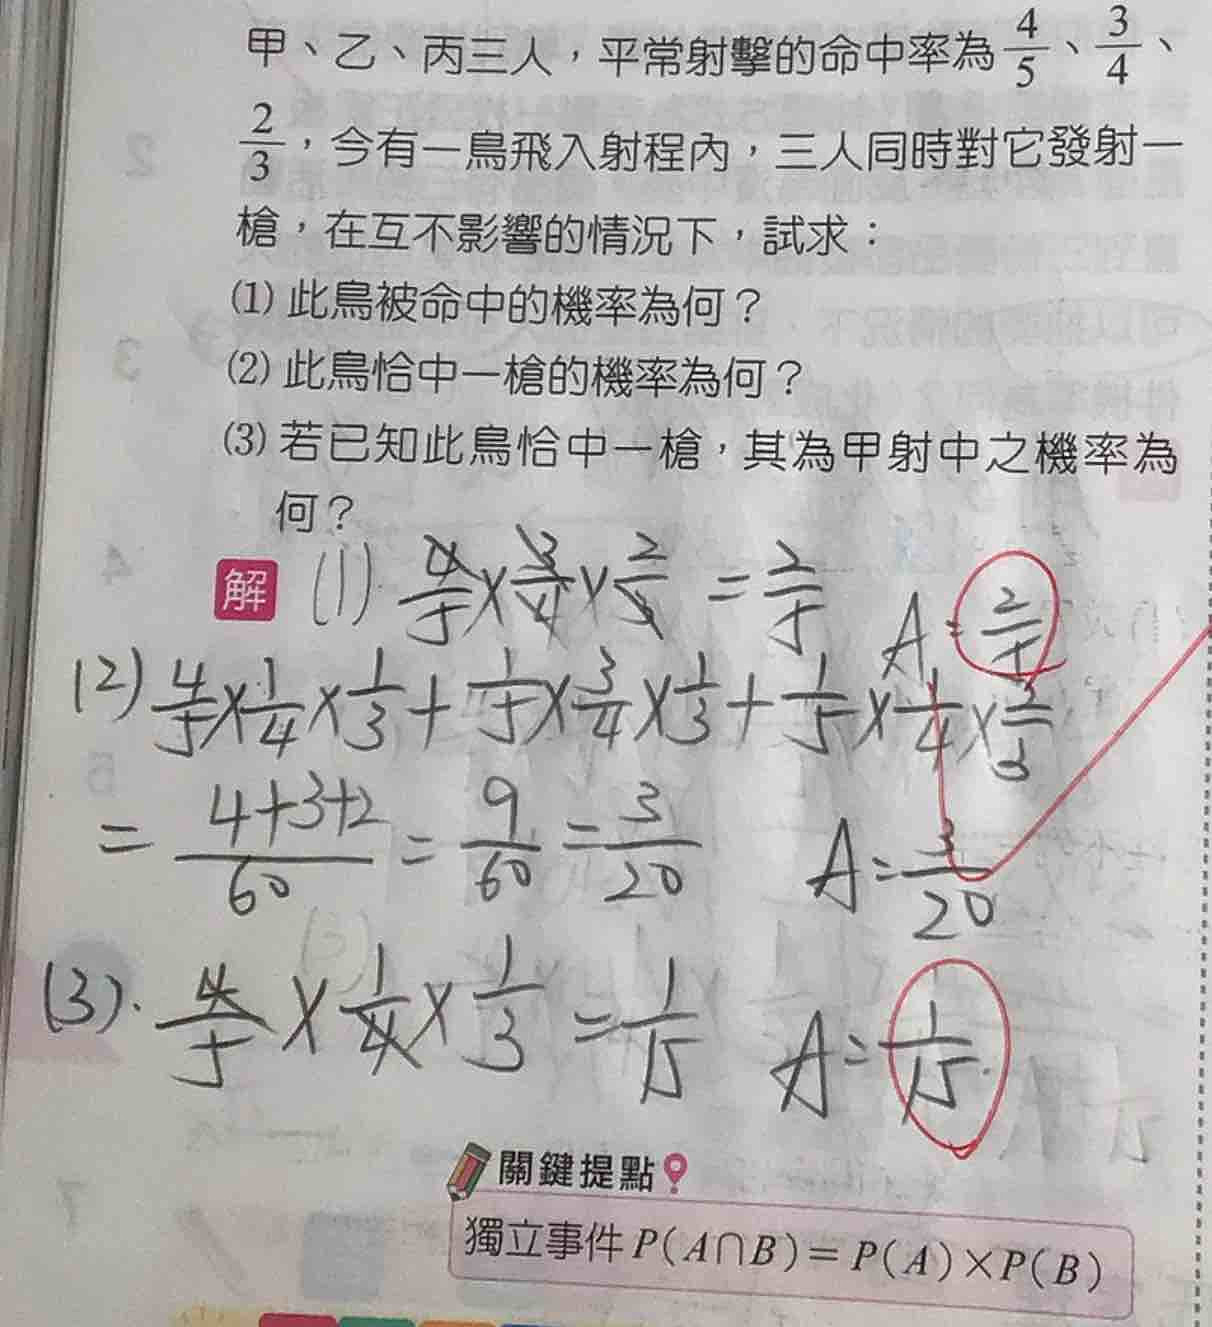 甲、乙、丙三人，平常射擊的命中率為 4/5、3/4、
2/3，今有一鳥飛入射程內，三人同時對它發射一
槍，在互不影響的情況下，試求：
(1) 此鳥被命中的機率為何？
(2) 此鳥恰中一槍的機率為何？
(3) 若已知此鳥恰中一槍，其為甲射中之機率為
何？
解 (1) 4/5 × 3/4 × 2/3 = 2/5 A = 2/5
(2) 4/5 × 1/4 × 1/3 + 1/5 × 3/4 × 1/3 + 1/5 × 1/4 × 2/3
= (4+3+2)/60 = 9/60 = 3/20 A = 3/20
(3). 4/5 × 1/4 × 1/3 = 1/15 A = 1/15.
關鍵提點
獨立事件 P(A∩B) = P(A)×P(B)